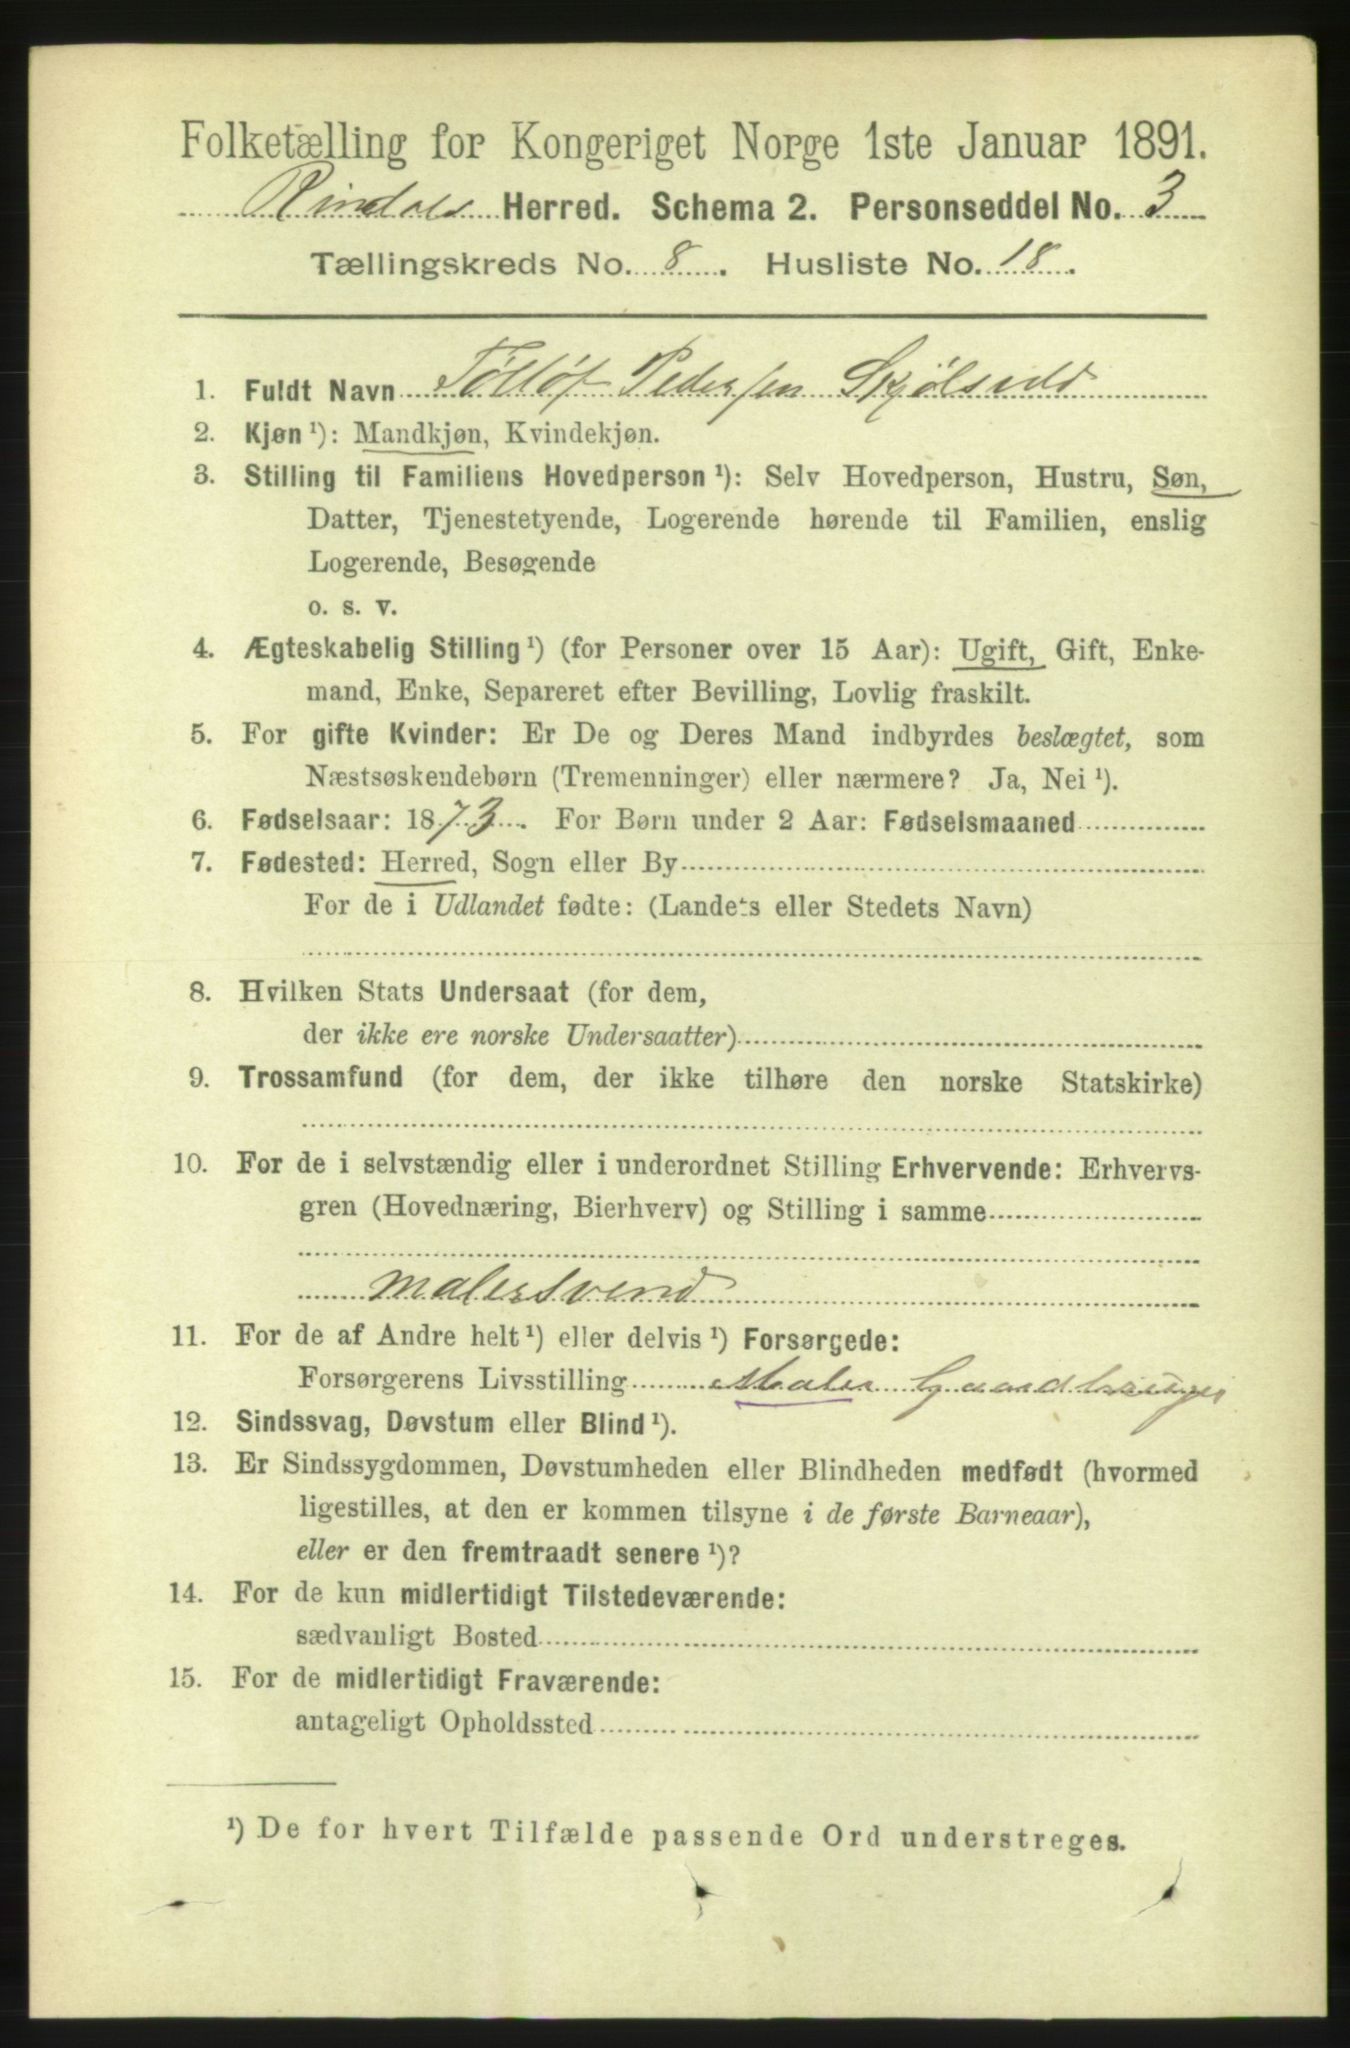 Folketælling for Kongeriget Norge 1ste Januar 1891.
Rindals Herred. Schema 2. Personseddel No. 3
Tællingskreds No. 8. Husliste No. 18.
1. Fuldt Navn Tølløf Pedersen Skjølsvold
2. Kjøn ¹): Mandkjøn, Kvindekjøn.
3. Stilling til Familiens Hovedperson ¹): Selv Hovedperson, Hustru, Søn,
Datter, Tjenestetyende, Logerende hørende til Familien, enslig
Logerende, Besøgende
o. s. v.
4. Ægteskabelig Stilling ¹) (for Personer over 15 Aar): Ugift, Gift, Enke-
mand, Enke, Separeret efter Bevilling, Lovlig fraskilt.
5. For gifte Kvinder: Er De og Deres Mand indbyrdes beslægtet, som
Næstsøskendebørn (Tremenninger) eller nærmere? Ja, Nei ¹).
6. Fødselsaar: 1873. For Børn under 2 Aar: Fødselsmaaned
7. Fødested: Herred, Sogn eller By
For de i Udlandet fødte: (Landets eller Stedets Navn)
8. Hvilken Stats Undersaat (for dem,
der ikke ere norske Undersaatter)
9. Trossamfund (for dem, der ikke tilhøre den norske Statskirke)
10. For de i selvstændig eller i underordnet Stilling Erhvervende: Erhvervs-
gren (Hovednæring, Bierhverv) og Stilling i samme
malersvend
11. For de af Andre helt ¹) eller delvis ¹) Forsørgede:
Forsørgerens Livsstilling Maler Gaardbruger
12. Sindssvag, Døvstum eller Blind ¹).
13. Er Sindssygdommen, Døvstumheden eller Blindheden medfødt (hvormed
ligestilles, at den er kommen tilsyne i de første Barneaar),
eller er den fremtraadt senere ¹)?
14. For de kun midlertidigt Tilstedeværende:
sædvanligt Bosted
15. For de midlertidigt Fraværende:
antageligt Opholdssted
¹) De for hvert Tilfælde passende Ord understreges.